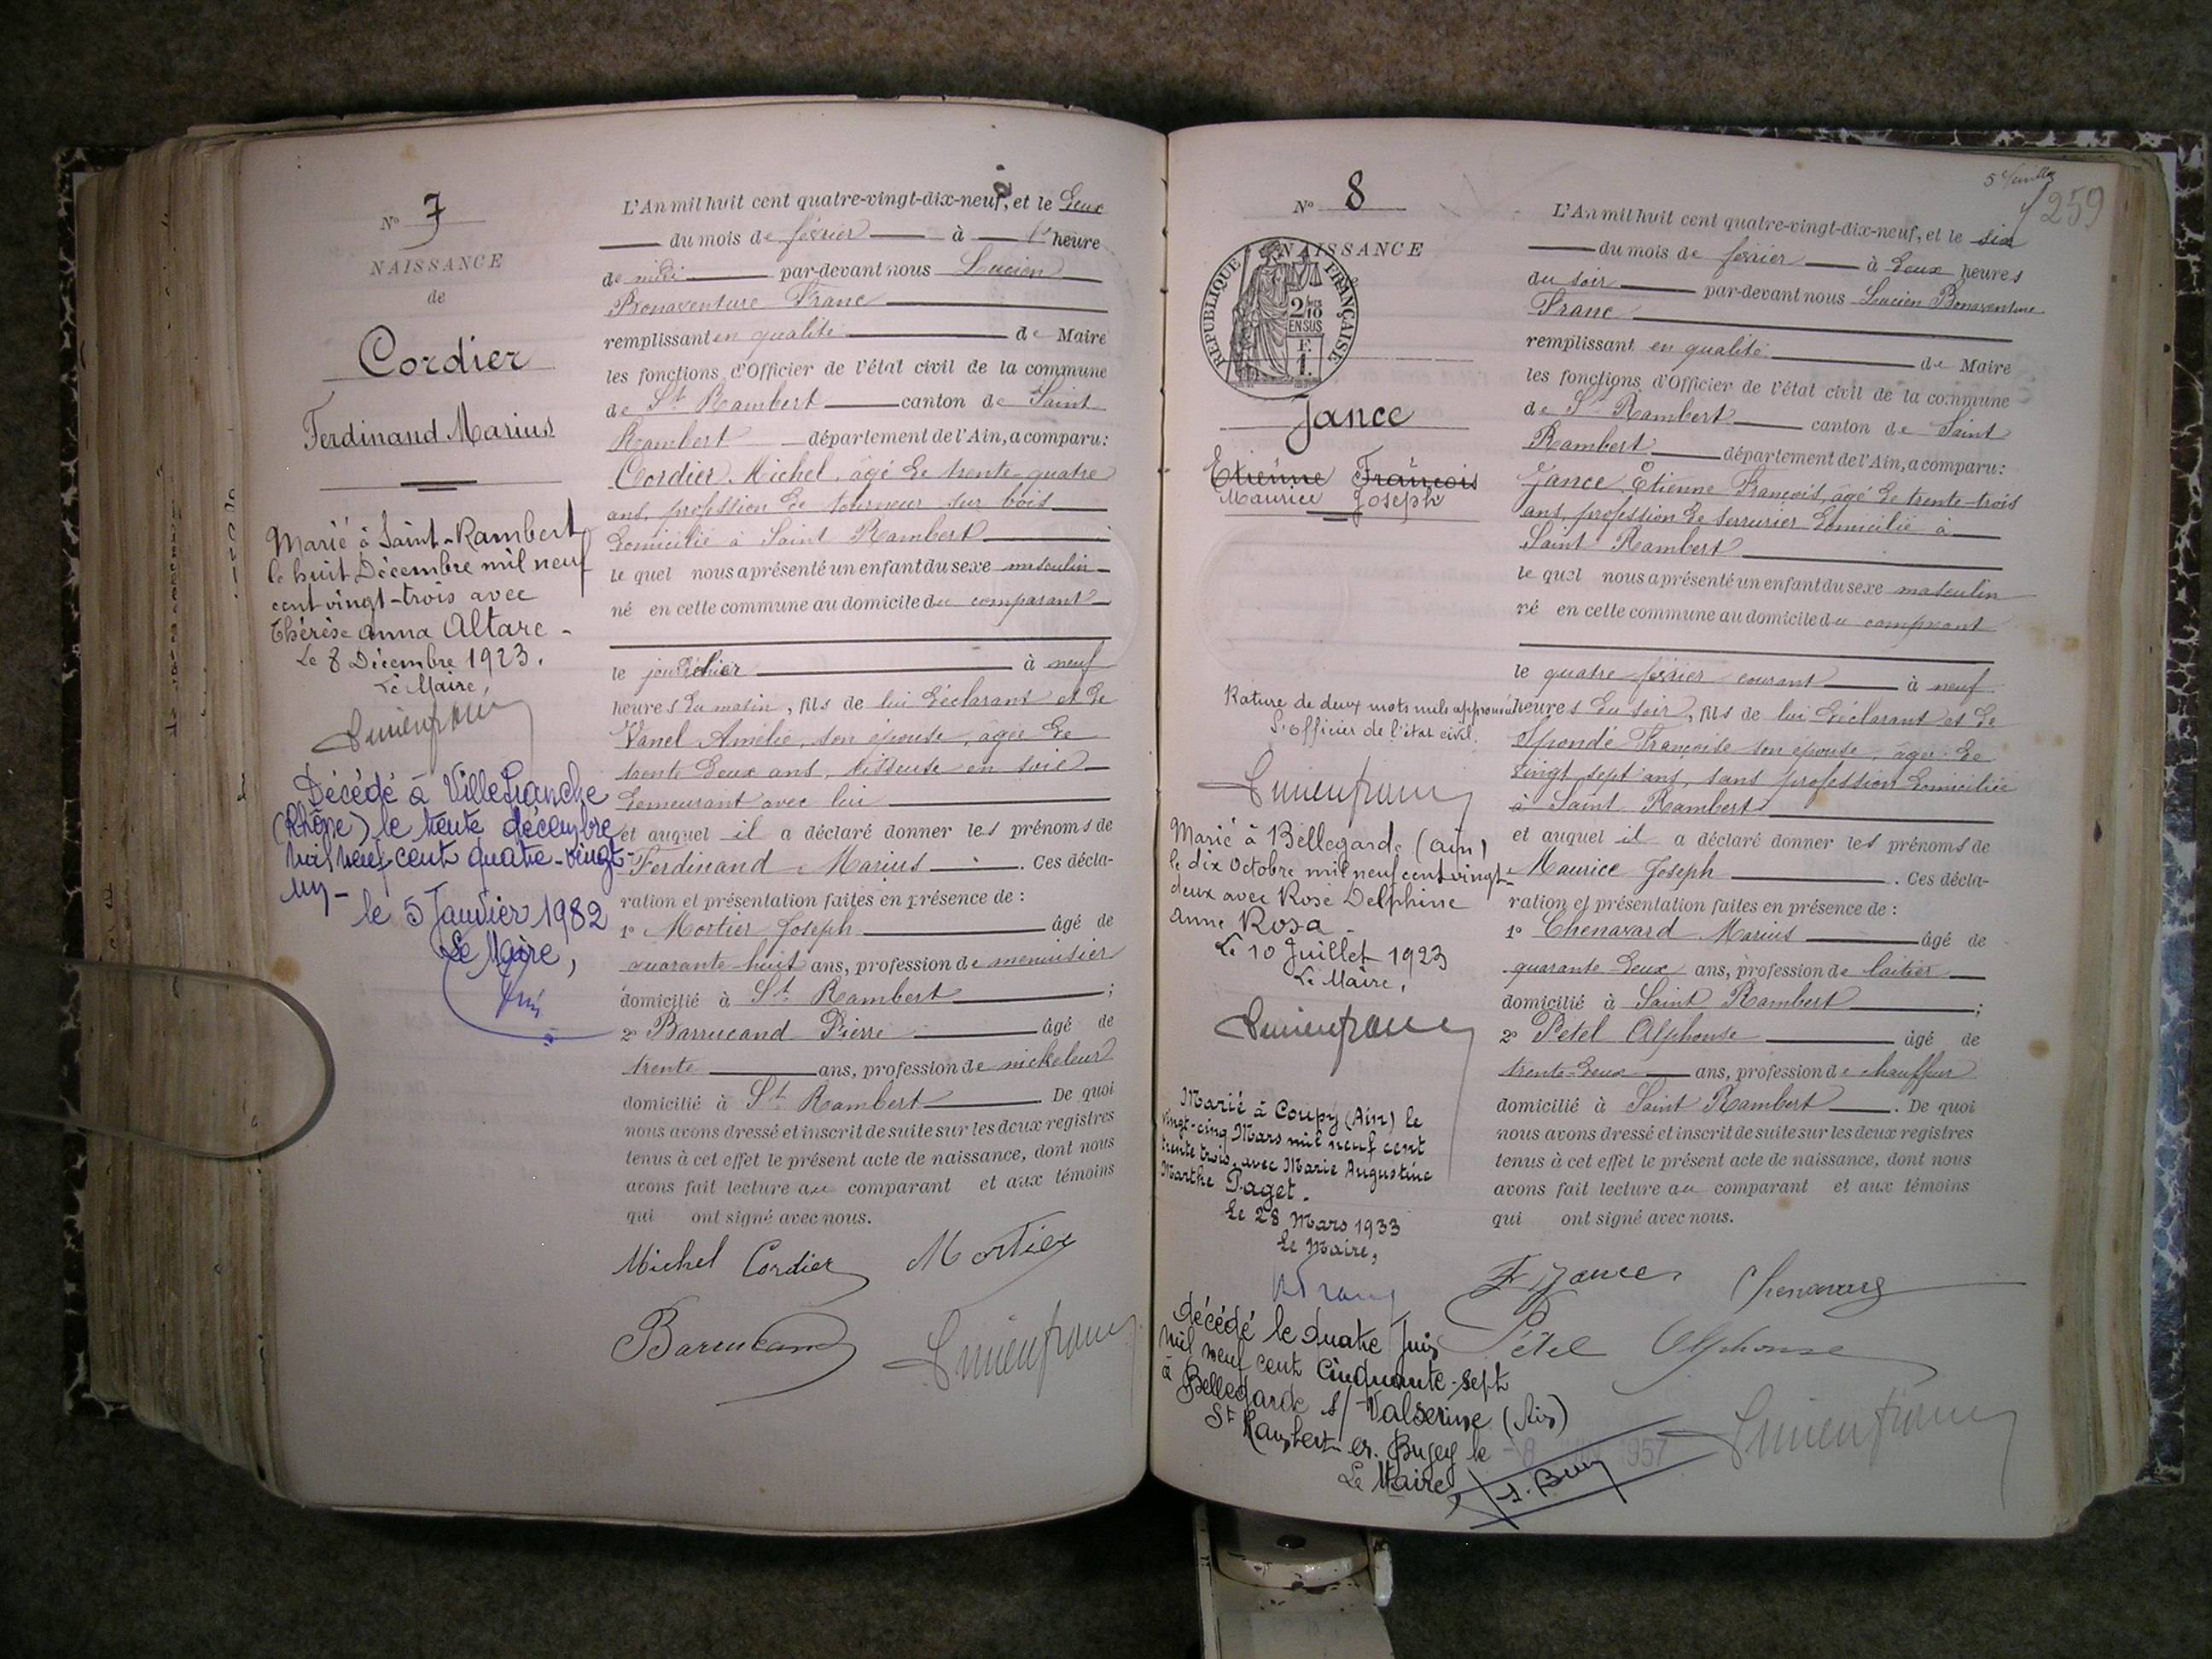 N° 7
NAISSANCE
de
Cordier
Ferdinand Marius
Marié à Saint-Rambert
le huit Décembre mil neuf
cent vingt-trois avec
Thérèse Anna Altare -
Le 8 Décembre 1923.
Le Maire,
Décédé à Villefranche
(Rhône) le trente décembre
mil neuf cent quatre-vingt-
un -
le 5 Janvier 1982
Le Maire,
L'An mil huit cent quatre-vingt-dix-neuf, et le deux
du mois de février à heure
de midi par-devant nous Lucien
Bonaventure Franc
remplissant en qualité de Maire
les fonctions d'Officier de l'état civil de la commune
de St Rambert canton de Saint
Rambert département de l'Ain, a comparu:
Cordier Michel, âgé de trente-quatre
ans, profession de tourneur sur bois
domicilié à Saint Rambert
lequel nous a présenté un enfant du sexe masculin
né en cette commune au domicile du comparant
le jour d'hier à neuf
heures du matin, fils de lui déclarant et de
Vanel Amélie, son épouse, âgée de
trente deux ans, tisseuse en soie
demeurant avec lui
et auquel il a déclaré donner les prénoms de
Ferdinand Marius. Ces décla-
ration et présentation faites en présence de :
1° Mortier Joseph âgé de
quarante-huit ans, profession de menuisier
domicilié à St Rambert ;
2° Barrucand Pierre âgé de
trente ans, profession de nickeleur
domicilié à St Rambert. De quoi
nous avons dressé et inscrit de suite sur les deux registres
tenus à cet effet le présent acte de naissance, dont nous
avons fait lecture au comparant et aux témoins
qui ont signé avec nous.
Michel Cordier Mortier
Barrucand Lucien franc
5e feuillet
259
N° 8
NAISSANCE
RÉPUBLIQUE FRANÇAISE
2/10
EN SUS
F.
1.
Jance
Etienne François
Maurice Joseph
Rature de deux mots nuls approuvée
L'officier de l'état civil.
Lucien franc
Marié à Bellegarde (Ain)
le dix Octobre mil neuf cent vingt-
deux avec Rose Delphine
Anne Rosa -
Le 10 Juillet 1923
Le Maire,
Lucien franc
Marié à Coupy (Ain) le
vingt-cinq Mars mil neuf cent
trente trois, avec Marie Augustine
Marthe Paget.
Le 28 Mars 1933
Le Maire,
décédé le quatre Juin
mil neuf cent Cinquante-sept
à Bellegarde s/ Valserine (Ain)
St Rambert-en-Bugey le -8 JUIN 1957
Le Maire
L'An mil huit cent quatre-vingt-dix-neuf, et le six
du mois de février à deux heures
du soir par-devant nous Lucien Bonaventure
Franc
remplissant en qualité de Maire
les fonctions d'Officier de l'état civil de la commune
de St Rambert canton de Saint
Rambert département de l'Ain, a comparu:
Jance Etienne François, âgé de trente-trois
ans, profession de serrurier domicilié à
Saint Rambert
lequel nous a présenté un enfant du sexe masculin
né en cette commune au domicile du comparant
le quatre février courant à neuf
heures du soir, fils de lui déclarant et de
Françoise son épouse, âgée de
vingt sept ans, sans profession domiciliée
à Saint Rambert
et auquel il a déclaré donner les prénoms de
Maurice Joseph. Ces décla-
ration et présentation faites en présence de :
1° Chenavard Marius âgé de
quarante deux ans, profession de laitier
domicilié à Saint Rambert ;
2° Petel Alphonse âgé de
trente-deux ans, profession de chauffeur
domicilié à Saint Rambert. De quoi
nous avons dressé et inscrit de suite sur les deux registres
tenus à cet effet le présent acte de naissance, dont nous
avons fait lecture au comparant et aux témoins
qui ont signé avec nous.
Jance Chenavard
Pétel Alphonse
Lucien franc